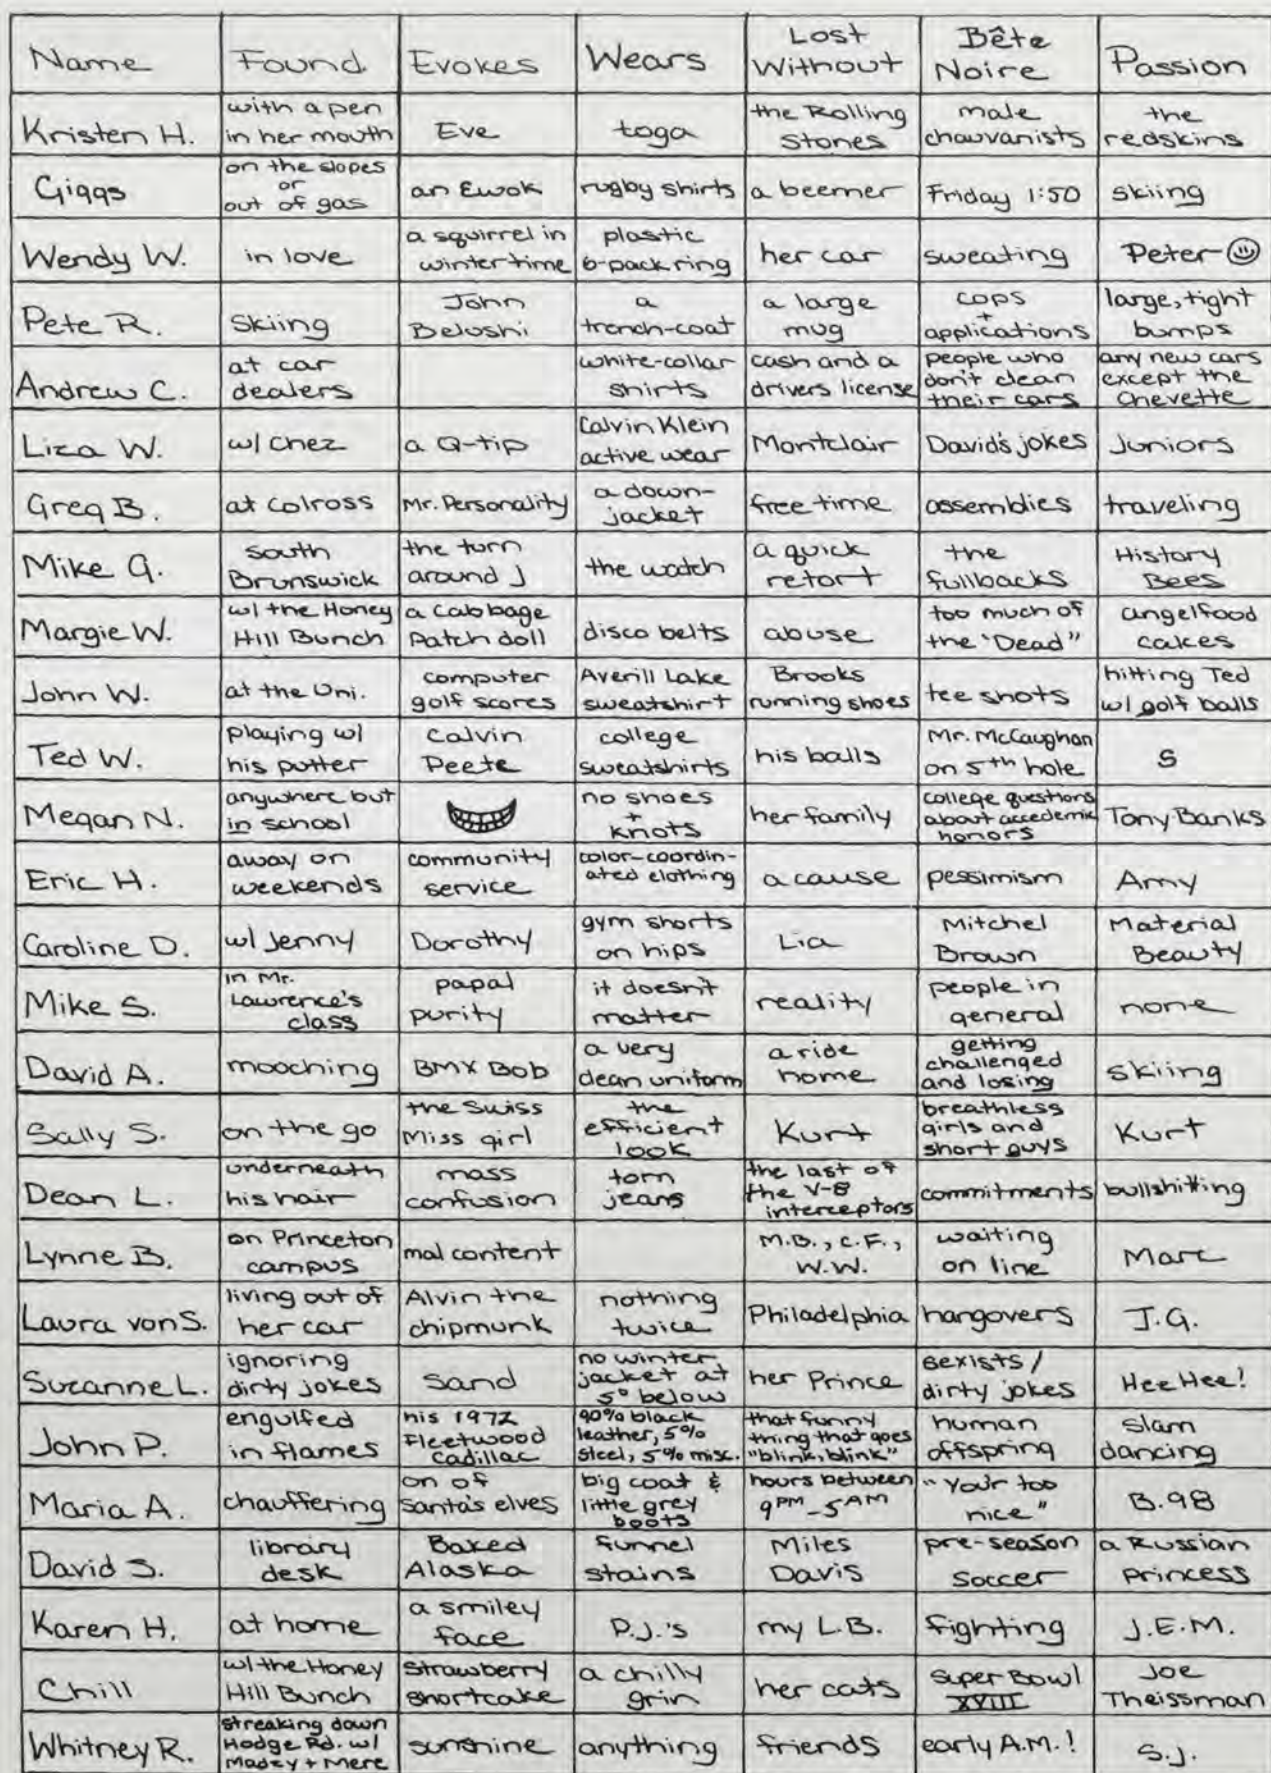 Name
Found
Evokes
Wears
Lost
Without
Bête
Noire
Passion
Kristen H.
with a pen
in her mouth
Eve
toga
the Rolling
Stones
male
chauvanists
the
redskins
Giggs
on the slopes
or
out of gas
an Ewok
rugby shirts
a beemer
Friday 1:50
skiing
Wendy W.
in love
a squirrel in
wintertime
plastic
6-pack ring
her car
sweating
Peter
Pete R.
Skiing
John
Belushi
a
trench-coat
a large
mug
cops
+
applications
large, tight
bumps
Andrew C.
at car
dealers
white-collar
shirts
cash and a
drivers license
people who
don't clean
their cars
any new cars
except the
Chevette
Liza W.
w/ Chez
a Q-tip
Calvin Klein
active wear
Montclair
David's jokes
Juniors
Greg B.
at Colross
Mr. Personality
a down-
jacket
free time
assemblies
traveling
Mike G.
South
Brunswick
the turn
around J
the watch
a quick
retort
the
fullbacks
History
Bees
Margie W.
w/ the Honey
Hill Bunch
a Cabbage
Patch doll
disco belts
abuse
too much of
the "Dead"
angelfood
cakes
John W.
at the Uni.
computer
golf scores
Averill Lake
sweatshirt
Brooks
running shoes
tee shots
hitting Ted
w/ golf balls
Ted W.
playing w/
his putter
Calvin
Peete
college
sweatshirts
his balls
Mr. McCaughan
on 5th hole
S
Megan N.
anywhere but
in school
no shoes
+
knots
her family
college questions
about accedemic
honors
Tony Banks
Eric H.
away on
weekends
community
service
color-coordin-
ated clothing
a cause
pessimism
Amy
Caroline D.
w/ Jenny
Dorothy
gym shorts
on hips
Lia
Mitchel
Brown
Material
Beauty
Mike S.
in Mr.
Lawrence's
class
papal
purity
it doesn't
matter
reality
people in
general
none
David A.
mooching
BMX Bob
a very
clean uniform
a ride
home
getting
challenged
and losing
skiing
Sally S.
on the go
the Swiss
Miss girl
the
efficient
look
Kurt
breathless
girls and
short guys
Kurt
Dean L.
underneath
his hair
mass
confusion
torn
jeans
the last of
the V-8
interceptors
commitments
bullshitting
Lynne B.
on Princeton
campus
mal content
M.B., C.F.,
W.W.
waiting
on line
Marc
Laura von S.
living out of
her car
Alvin the
chipmunk
nothing
twice
Philadelphia
hangovers
J.G.
Suzanne L.
ignoring
dirty jokes
sand
no winter
jacket at
5° below
her Prince
sexists/
dirty jokes
Hee Hee!
John P.
engulfed
in flames
his 1972
Fleetwood
Cadillac
90% black
leather, 5%
steel, 5% misc.
that funny
thing that goes
"blink, blink"
human
offspring
slam
dancing
Maria A.
chauffering
on of
Santa's elves
big coat &
little grey
boots
hours between
9PM-5AM
"Your too
nice"
B.98
David S.
library
desk
Baked
Alaska
funnel
stains
Miles
Davis
pre-season
soccer
a Russian
princess
Karen H.
at home
a smiley
face
P.J.'s
my L.B.
fighting
J.E.M.
Chill
w/ the Honey
Hill Bunch
Strawberry
shortcake
a chilly
grin
her cats
Super Bowl
XVIII
Joe
Theissman
Whitney R.
streaking down
Hodge Rd. w/
Madey + Mere
sunshine
anything
friends
early A.M.!
S.J.